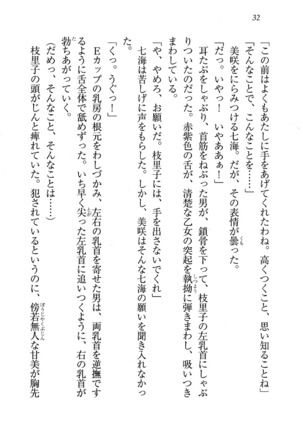 32
「この前はよくもあたしに手をあげてくれたわね。高くつくこと、思い知るといいわ」
「そんなことで、こんなことを……」
美咲をにらみつける七海。だが、その表情が曇った。
「だっ。いやっ……いやあっ！」
耳たぶをしゃぶり、首筋をねぶった男が、鎖骨を下って、枝里子の左乳首にしゃぶ
りついたのだった。赤紫色の舌が、清楚な乙女の突起を執拗に弾きまわし、吸いつき
まわしている。
「や、やめろ、お願いだ。枝里子には、手を出さないでくれ」
七海は苦しげに声をもらした。しかし、美咲はそんな七海の願いを聞き入れなかっ
た。
「くっ。うぐっ……！」
Eカップの乳房の根元をわしづかみ、左右の乳首を寄せた男は、両乳首を逆撫です
るように舌全体で舐めずった。いち早く尖った左乳首に追いつくように、右の乳首が
勃ちあがっていく。
「だめっ、そんなこと、そんなことは……」
枝里子の頭がじんと痺れていた。犯されているというのに、傍若無人な甘美が胸先